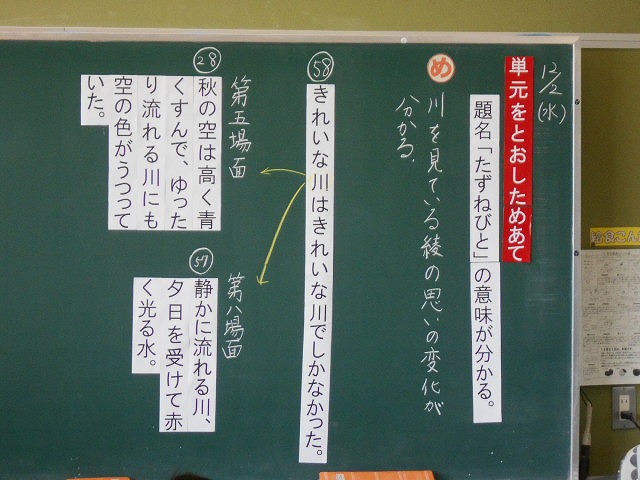 12/2(水)
単元をとおしためあて
題名「たずねびと」の意味が分かる。
め
川を見ている綾の思いの変化が
分かる。
58
きれいな川はきれいな川でしかなかった。
第五場面
28
秋の空は高く青
くすんで、ゆった
り流れる川にも
空の色がうつって
いた。
第八場面
57
静かに流れる川、
夕日を受けて赤
く光る水。
給食こん